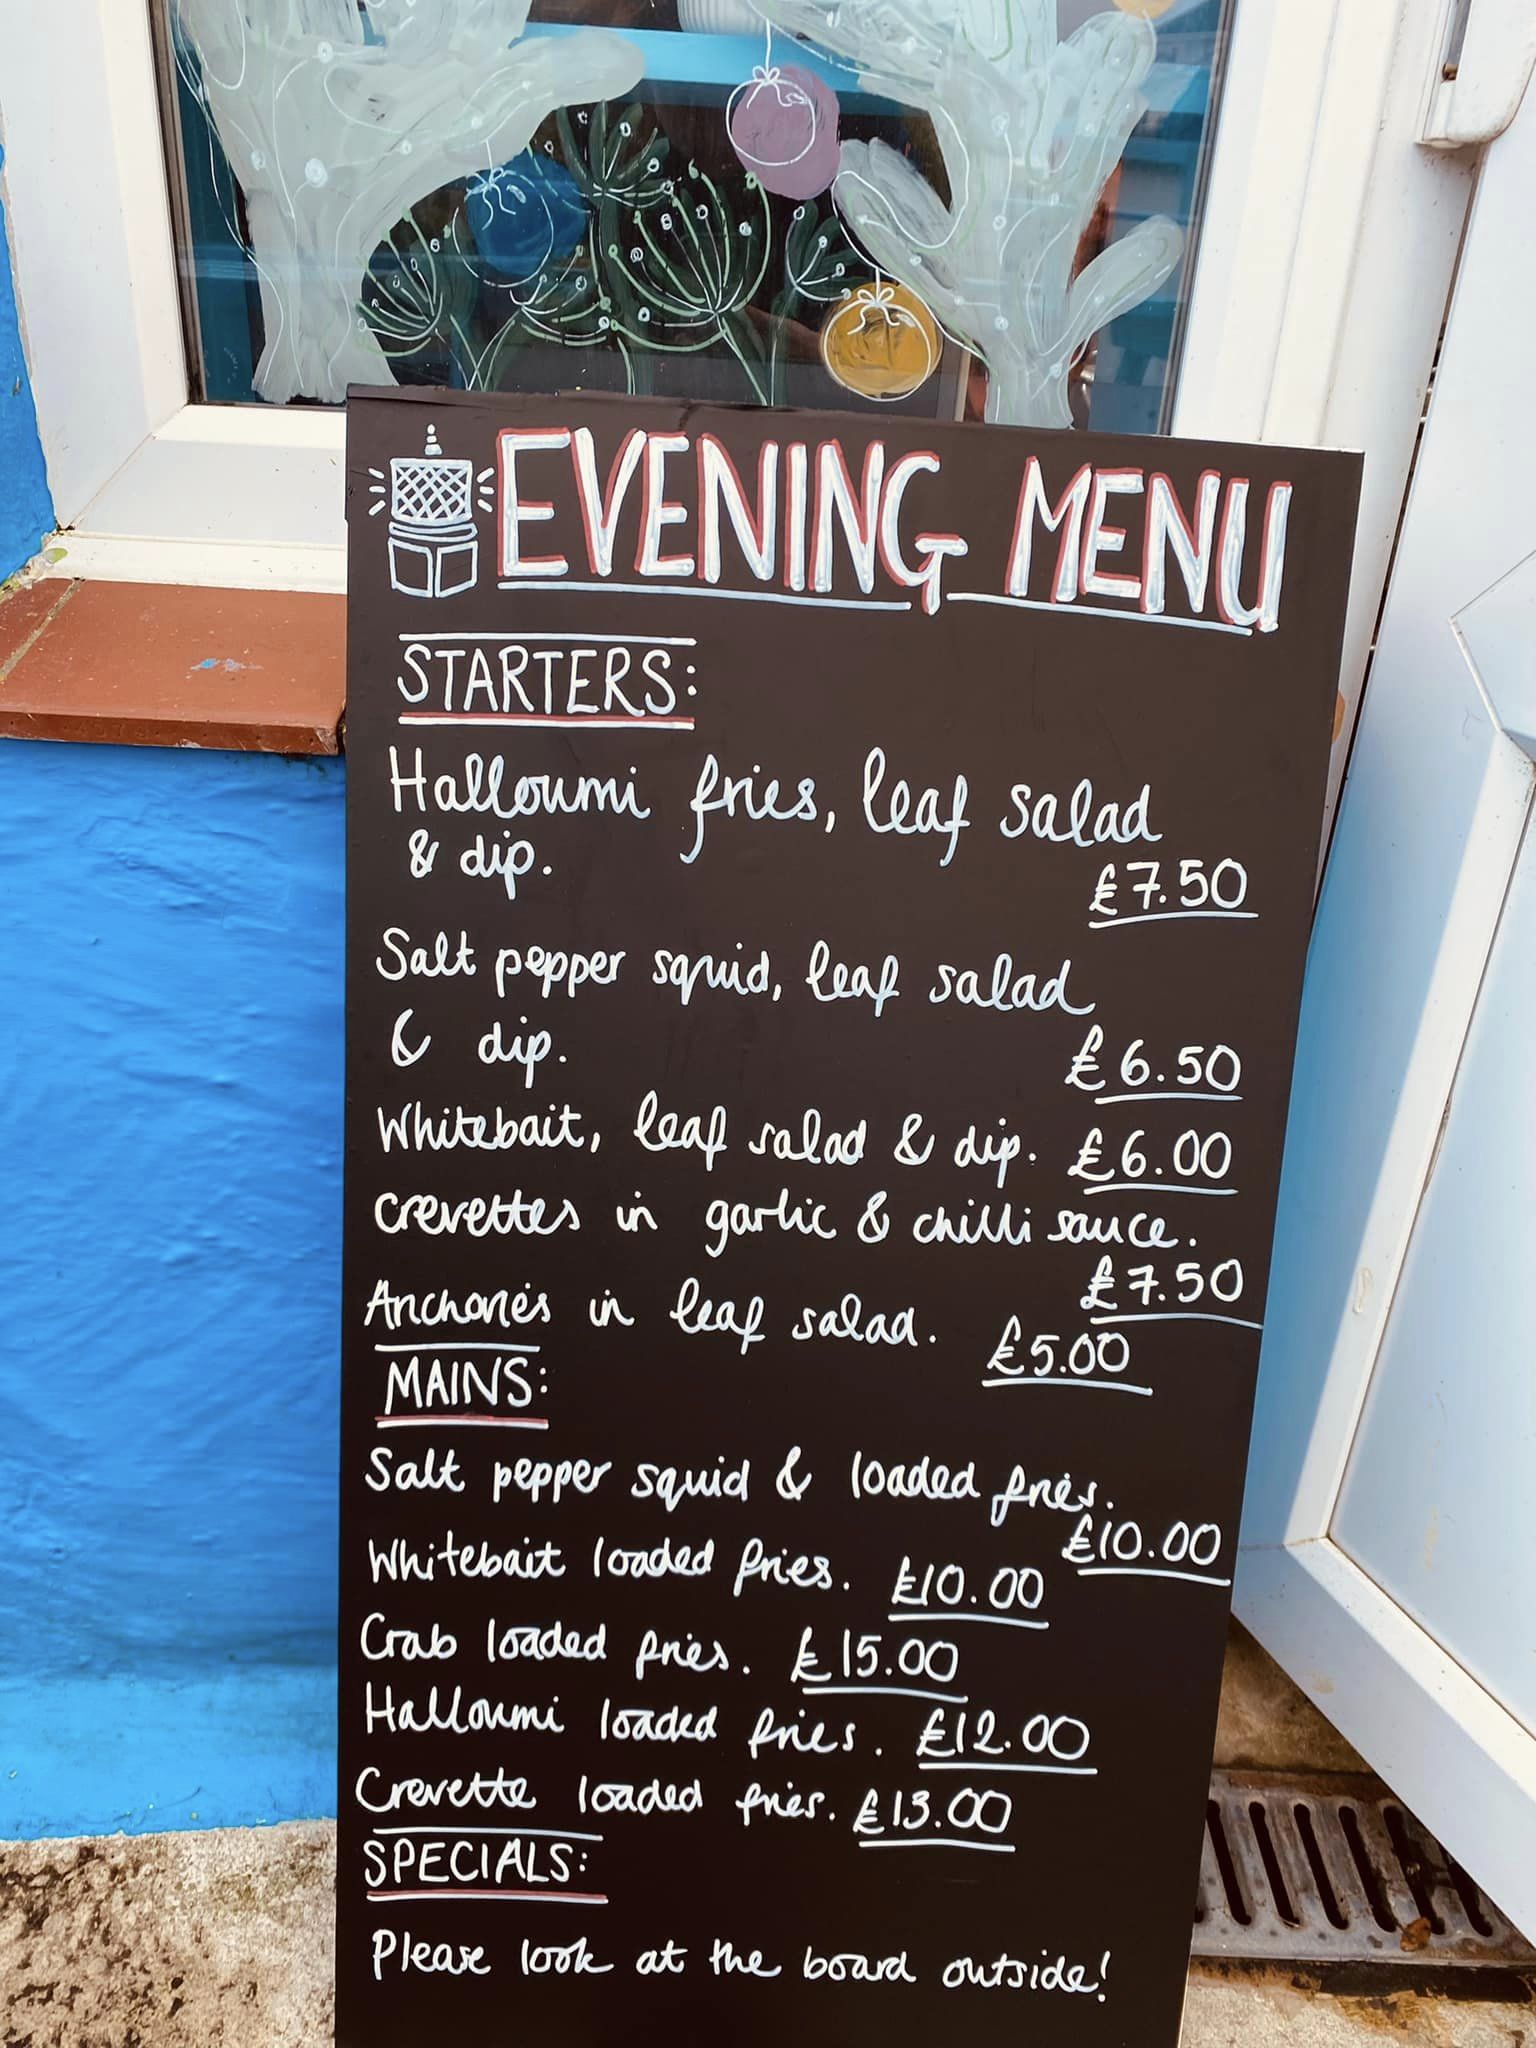 EVENING MENU
STARTERS:
Halloumi fries, leaf salad
& dip.
£7.50
Salt pepper squid, leaf salad
& dip.
£6.50
Whitebait, leaf salad & dip. £6.00
Crevettes in garlic & chilli sauce.
£7.50
Anchovies in leaf salad. £5.00
MAINS:
Salt pepper squid & loaded fries.
£10.00
Whitebait loaded fries. £10.00
Crab loaded fries. £15.00
Halloumi loaded fries. £12.00
Crevette loaded fries. £13.00
SPECIALS:
Please look at the board outside!